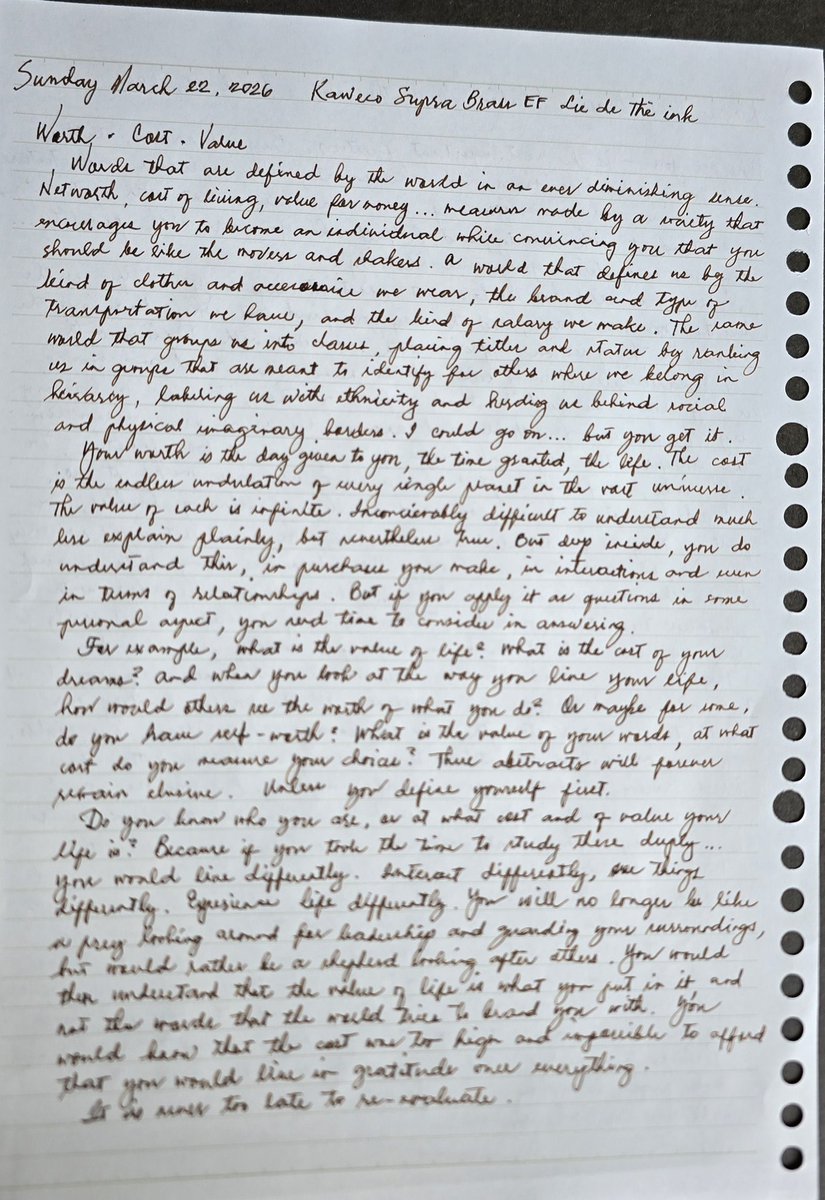 Sunday March 22, 2026 Kaweco Supra Brass EF Lie de thé ink
Worth · Cost · Value
Words that are defined by the world in an ever diminishing sense.
Networth, cost of living, value for money... measures made by a society that
encourages you to become an individual while convincing you that you
should be like the movers and shakers. A world that defines us by the
kind of clothes and accessorise we wear, the brand and type of
transportation we have, and the kind of salary we make. The same
world that groups us into classes, placing titles and status by ranking
us in groups that are meant to identify for others where we belong in
heirarsy, labeling us with ethnicity and herding us behind social
and physical imaginary borders. I could go on... but you get it.
Your worth is the day given to you, the time granted, the life. The cost
is the endless undulation of every single planet in the vast universe.
The value of each is infinite. Inconcievably difficult to understand much
less explain plainly, but nevertheless true. But deep inside, you do
understand this, in purchases you make, in interactions and even
in terms of relationships. But if you apply it as questions in some
personal aspect, you need time to consider in answering.
For example, what is the value of life? What is the cost of your
dreams? And when you look at the way you live your life,
how would others see the worth of what you do? Or maybe for some,
do you have self-worth? What is the value of your words, at what
cost do you measure your choice? These abstracts will forever
remain elusive. Unless you define yourself first.
Do you know who you are, or at what cost and of value your
life is? Because if you took the time to study these deeply...
you would live differently. Interact differently, see things
differently. Experience life differently. You will no longer be like
a prey looking around for leadership and guarding your surroundings,
but would rather be a shepherd looking after others. You would
then understand that the value of life is what you put in it and
not the words that the world tries to brand you with. You
would know that the cost was too high and impossible to afford
that you would live in gratitude over everything.
It is never too late to re-evaluate.